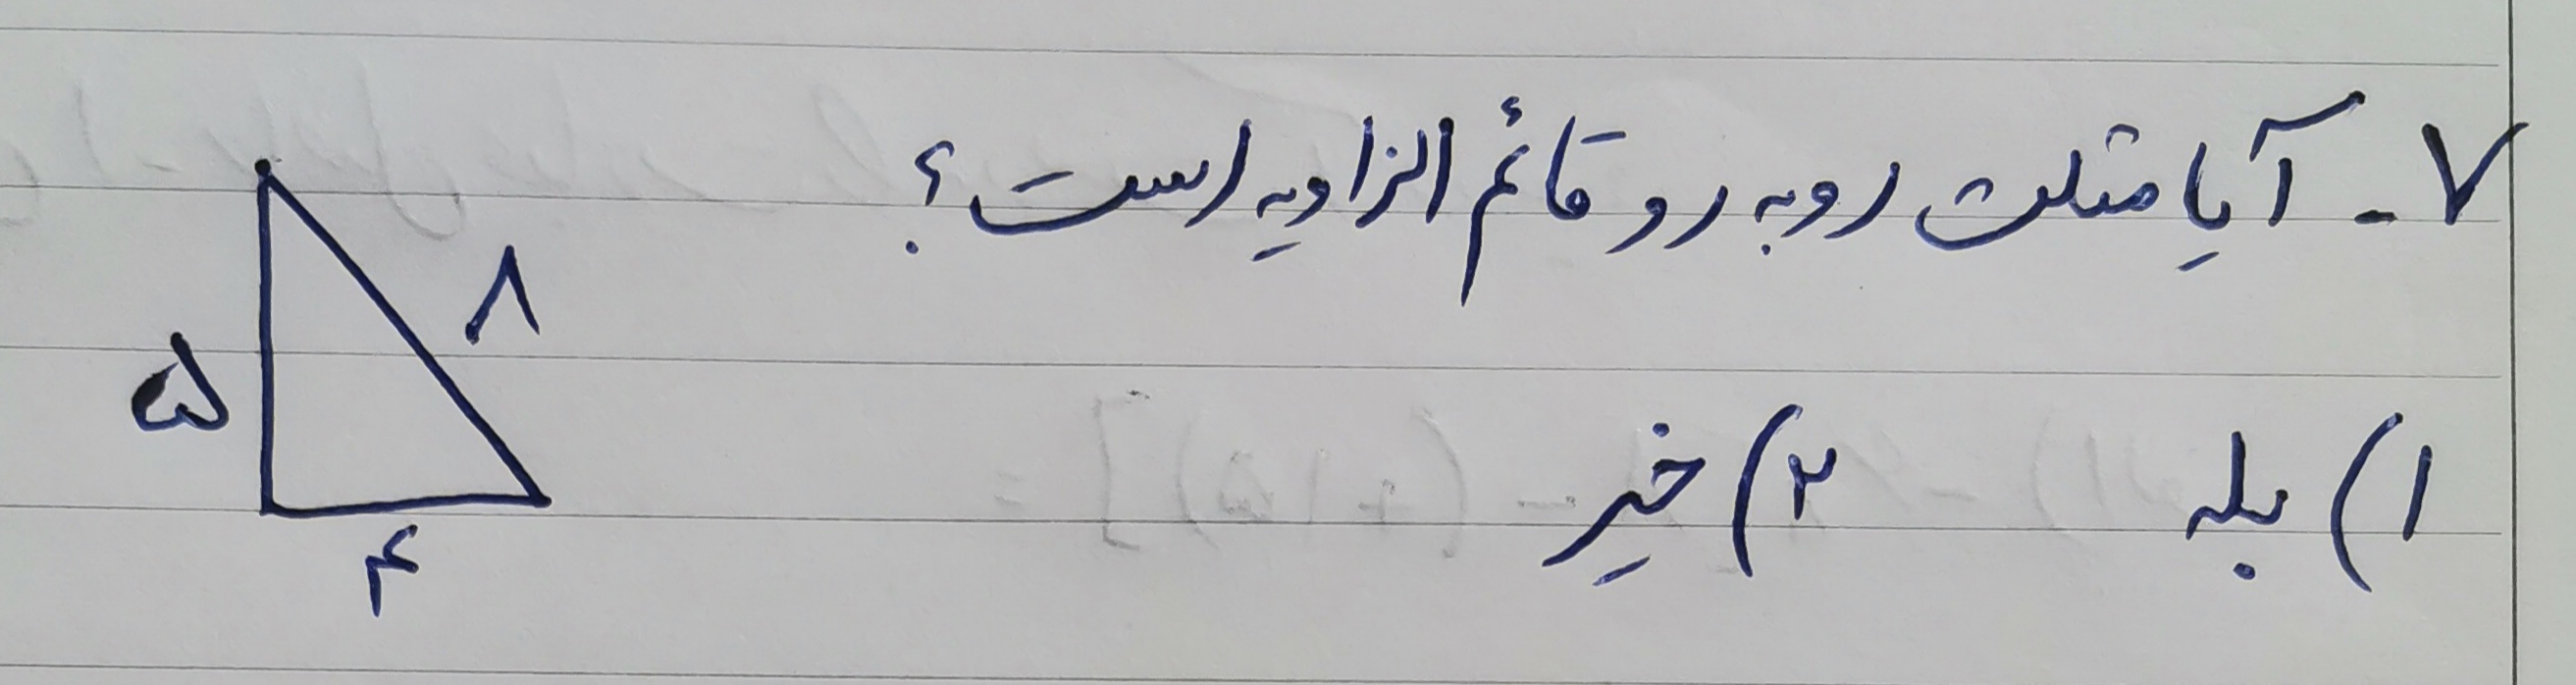 ۷- آیا مثلث روبه رو قائم الزاویه است؟
۸
۵
۱) بله ۲) خیر
۴